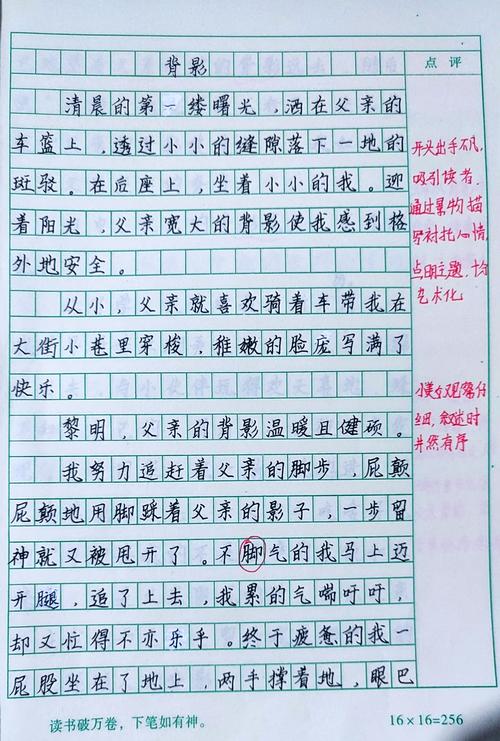 点评
背影
清晨的第一缕曙光，洒在父亲的
车篮上，透过小小的缝隙落下一地的
斑驳。在后座上，坐着小小的我。迎
着阳光，父亲宽大的背影使我感到格
外地安全。
从小，父亲就喜欢骑着车带我在
大街小巷里穿梭，稚嫩的脸庞写满了
快乐。
黎明，父亲的背影温暖且健硕。
我努力追赶着父亲的脚步，屁颠
屁颠地用脚踩着父亲的影子，一步留
神就又被甩开了。不脚气的我马上迈
开腿，追了上去，我累的气喘吁吁，
却又忙得不亦乐乎。终于疲惫的我一
屁股坐在了地上，两手撑着地，眼巴
开头出手不凡，
吸引读者，
通过景物描
写衬托心情，
点明主题，十分
艺术化
观察仔
细，叙述时
井然有序
读书破万卷，下笔如有神。
16×16=256